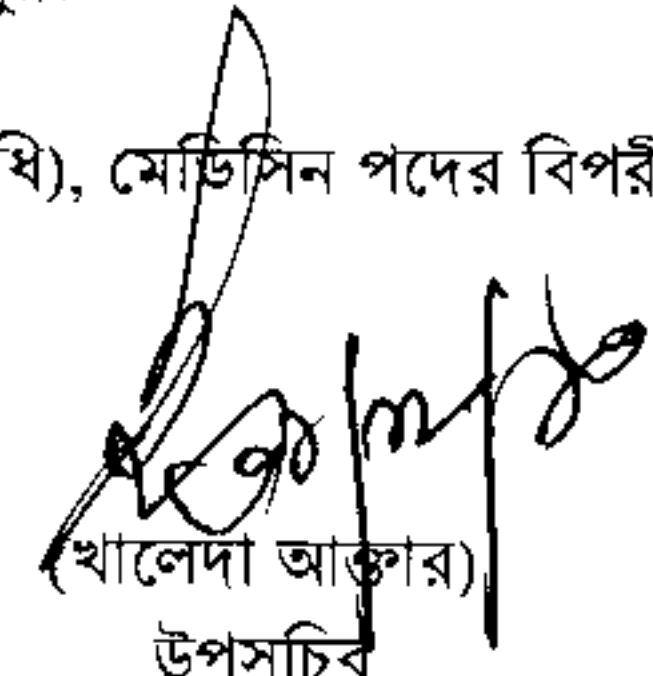 ধি), মেডিসিন পদের বিপরী
(খালেদা আক্তার)
উপসচিব